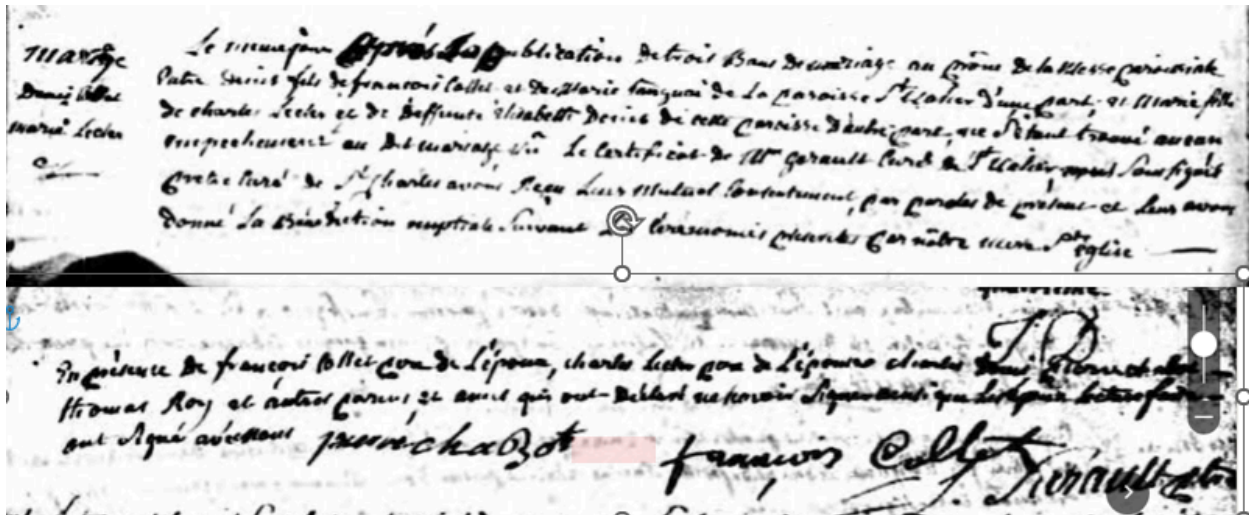 Mariage
Denis Collet
Marie Lecler
Le mesme jour Après La publication de trois Bans de mariage au prône de la Messe paroissiale
Entre Denis fils de françois Collet et de Marie tanguai de La paroisse St Valier d'une part et Marie fille
de charles Lecler et de deffunte Elisabeth Denis de cette paroisse d'autre part, ne s'étant trouvé aucun
empechement au dit mariage vû Le Certificat de Mr Garault Curé de St Valier nous Sous signé
prêtre Curé de St Charles avons Reçu Leur Mutuel Consentement par paroles de présent et Leur avons
donné La Bénédiction nuptiale Suivant Les Cérémonies prescrites par nôtre mere Ste église
En présence de françois Collet pere de L'époux, charles Lecler pere de L'épouse charles Denis Pierre chabot
thomas Roy et autres parens et amis qui ont Déclaré ne savoir Signer
ont Signé avec nous pierre chaBot françois Collet Sarault ptre